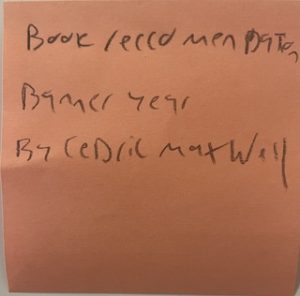 Book reccomendation
Bamer year
By Cedric maxWell